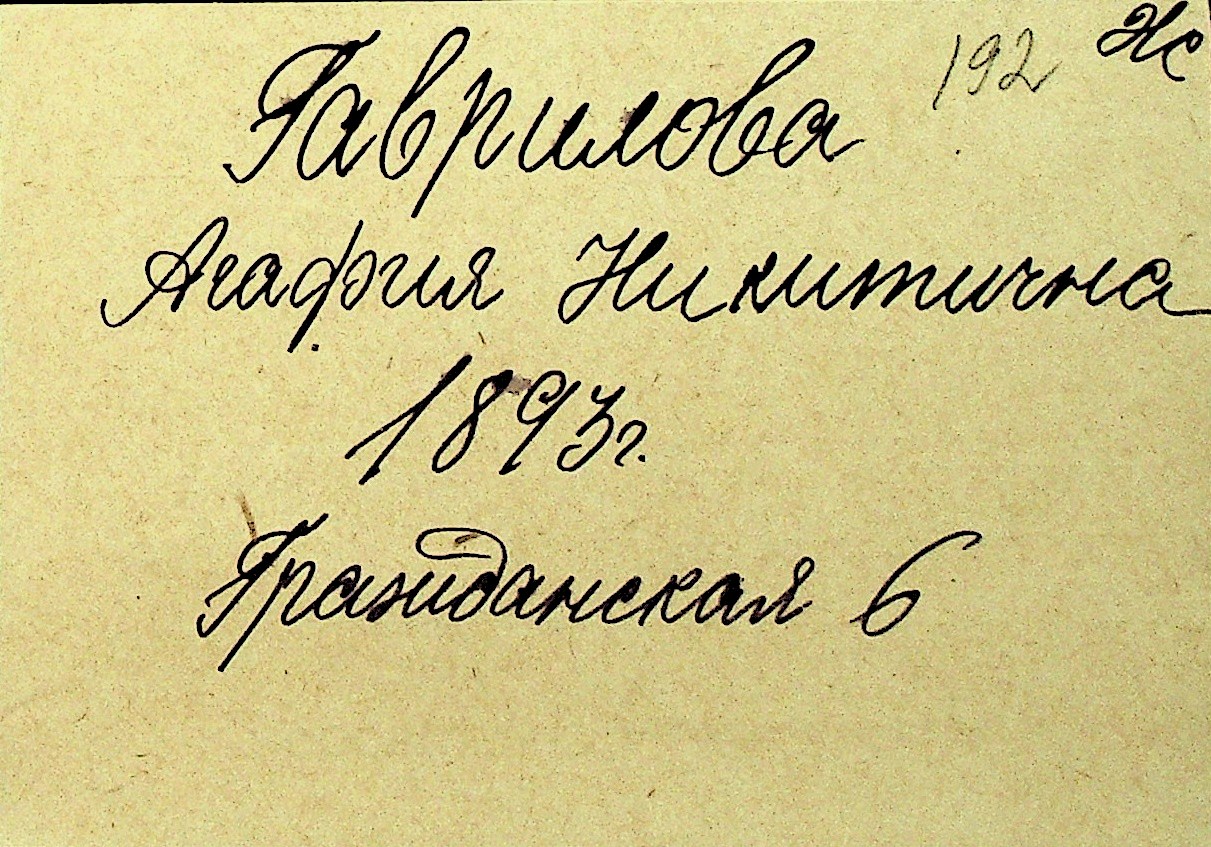 192 Нс
Гаврилова
Агафия Никитична
1893г.
Гражданская 6